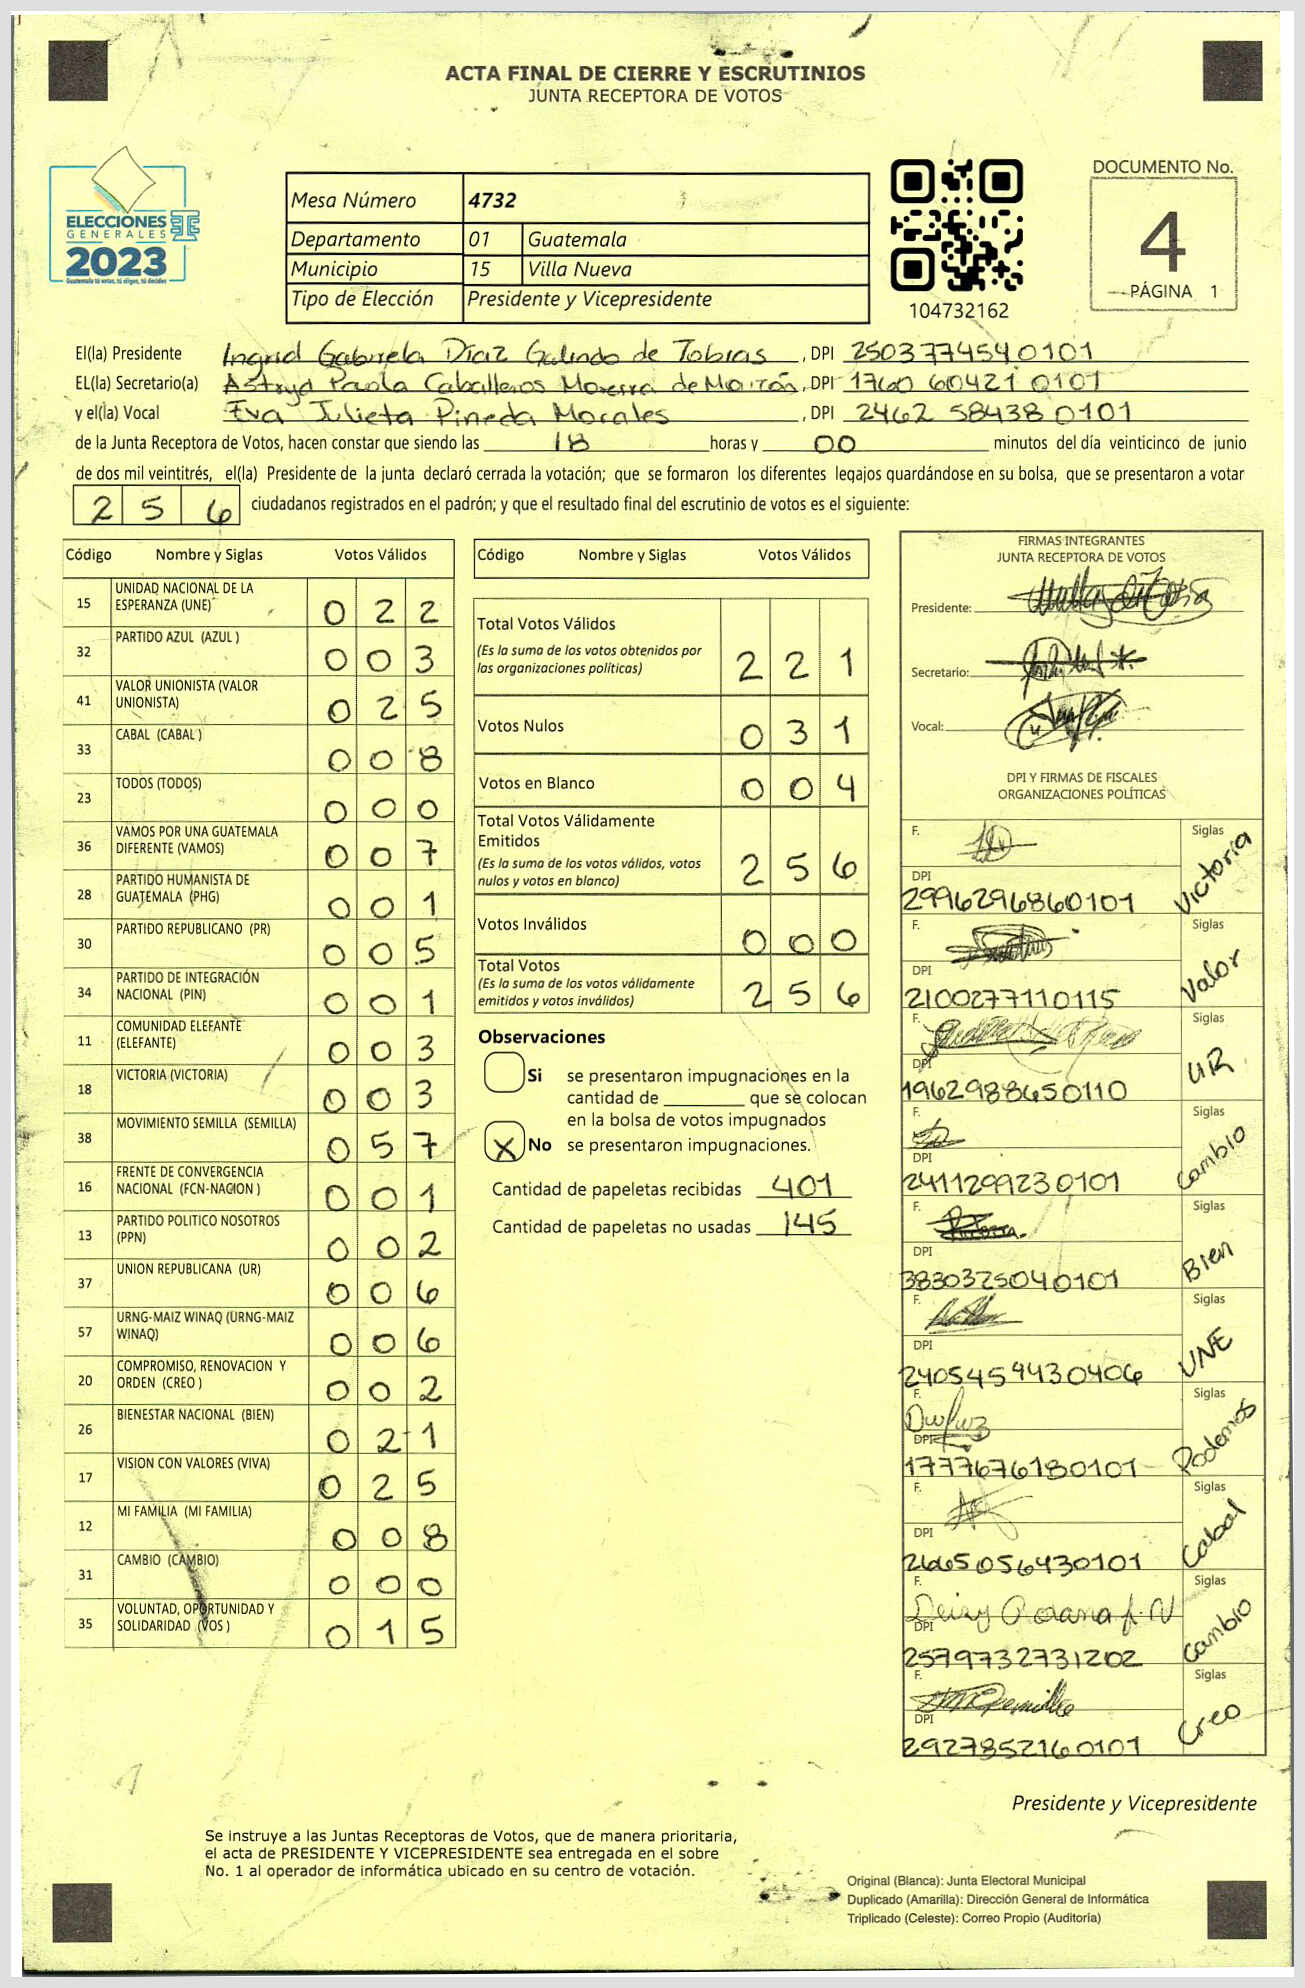 ACTA FINAL DE CIERRE Y ESCRUTINIOS
JUNTA RECEPTORA DE VOTOS
ELECCIONES
GENERALES
2023
Guatemala tú votas, tú eliges, tú decides
Mesa Número 4732
Departamento 01 Guatemala
Municipio 15 Villa Nueva
Tipo de Elección Presidente y Vicepresidente
104732162
DOCUMENTO No.
4
PÁGINA 1
El(la) Presidente Ingrid Gabriela Díaz Galindo de Tobias, DPI 2503774540101
EL(la) Secretario(a) Astryd Paola Caballeros, DPI 1760 60421 0101
y el(la) Vocal Eva Julieta Pineda Morales, DPI 2462 58438 0101
de la Junta Receptora de Votos, hacen constar que siendo las 18 horas y 00 minutos del día veinticinco de junio
de dos mil veintitrés, el(la) Presidente de la junta declaró cerrada la votación; que se formaron los diferentes legajos guardándose en su bolsa, que se presentaron a votar
256 ciudadanos registrados en el padrón; y que el resultado final del escrutinio de votos es el siguiente:
Código Nombre y Siglas Votos Válidos
15 UNIDAD NACIONAL DE LA ESPERANZA (UNE) 022
32 PARTIDO AZUL (AZUL ) 003
41 VALOR UNIONISTA (VALOR UNIONISTA) 025
33 CABAL (CABAL ) 008
23 TODOS (TODOS) 000
36 VAMOS POR UNA GUATEMALA DIFERENTE (VAMOS) 007
28 PARTIDO HUMANISTA DE GUATEMALA (PHG) 001
30 PARTIDO REPUBLICANO (PR) 005
34 PARTIDO DE INTEGRACIÓN NACIONAL (PIN) 001
11 COMUNIDAD ELEFANTE (ELEFANTE) 003
18 VICTORIA (VICTORIA) 003
38 MOVIMIENTO SEMILLA (SEMILLA) 057
16 FRENTE DE CONVERGENCIA NACIONAL (FCN-NACION ) 001
13 PARTIDO POLITICO NOSOTROS (PPN) 002
37 UNION REPUBLICANA (UR) 006
57 URNG-MAIZ WINAQ (URNG-MAIZ WINAQ) 006
20 COMPROMISO, RENOVACION Y ORDEN (CREO ) 002
26 BIENESTAR NACIONAL (BIEN) 021
17 VISION CON VALORES (VIVA) 025
12 MI FAMILIA (MI FAMILIA) 008
31 CAMBIO (CAMBIO) 000
35 VOLUNTAD, OPORTUNIDAD Y SOLIDARIDAD (VOS ) 015
Código Nombre y Siglas Votos Válidos
Total Votos Válidos 221
(Es la suma de los votos obtenidos por
las organizaciones políticas)
Votos Nulos 031
Votos en Blanco 004
Total Votos Válidamente
Emitidos 256
(Es la suma de los votos válidos, votos
nulos y votos en blanco)
Votos Inválidos 000
Total Votos 256
(Es la suma de los votos válidamente
emitidos y votos inválidos)
Observaciones
Si se presentaron impugnaciones en la
cantidad de ________ que se colocan
en la bolsa de votos impugnados
X No se presentaron impugnaciones.
Cantidad de papeletas recibidas 401
Cantidad de papeletas no usadas 145
FIRMAS INTEGRANTES
JUNTA RECEPTORA DE VOTOS
Presidente:
Secretario:
Vocal:
DPI Y FIRMAS DE FISCALES
ORGANIZACIONES POLÍTICAS
F. Siglas Victoria
DPI
2996296860101
F. Siglas Valor
DPI
2100277110115
F. Siglas UR
DPI
1962988650110
F. Siglas Cambio
DPI
2411299230101
F. Siglas Bien
DPI
3830325040101
F. Siglas UNE
DPI
2405459430406
F. Siglas Podemos
DPI
1777676180101
F. Siglas Cabal
DPI
2665056430101
F. Siglas Cambio
DPI
2579732731202
F. Siglas Creo
DPI
2927852160101
Presidente y Vicepresidente
Se instruye a las Juntas Receptoras de Votos, que de manera prioritaria,
el acta de PRESIDENTE Y VICEPRESIDENTE sea entregada en el sobre
No. 1 al operador de informática ubicado en su centro de votación.
Original (Blanca): Junta Electoral Municipal
Duplicado (Amarilla): Dirección General de Informática
Triplicado (Celeste): Correo Propio (Auditoría)